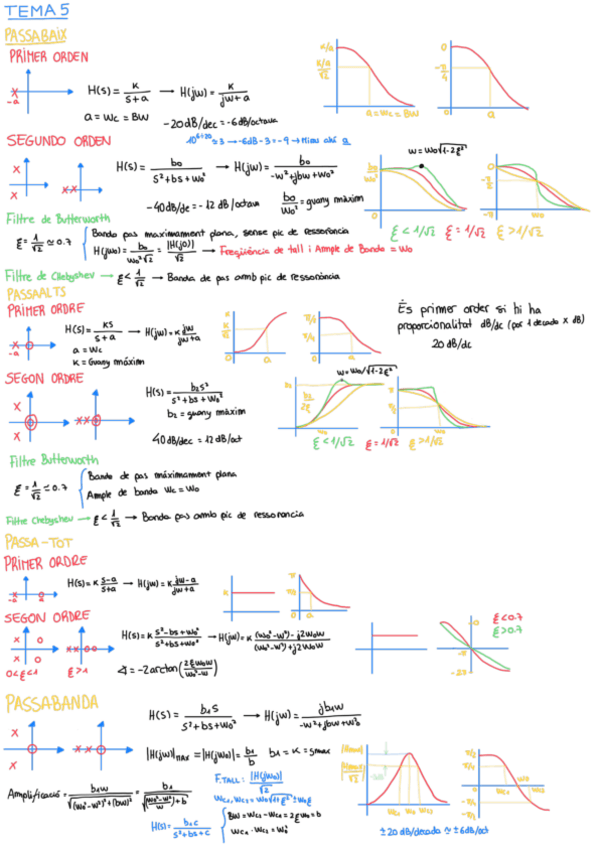 TEMA 5
PASSABAIX
PRIMER ORDEN
H(s) = K / (s + a) → H(jw) = K / (jw + a)
a = wc = BW
-20dB/dec = -6dB/octava
K/a
K/a / √2
a = wc = BW
0
-π/4
a
SEGUNDO ORDEN
H(s) = b0 / (s² + bs + w0²) → H(jw) = b0 / (-w² + jbw + w0²)
-40dB/dc = -12 dB/octava
b0/w0² = guany màxim
w = w0√(1-2ξ²)
b0/w0²
ξ < 1/√2 ξ = 1/√2 ξ > 1/√2
Filtre de Butterworth
ξ = 1/√2 ≃ 0.7
Banda pas maximament plana, sense pic de ressonància
H(jw0) = b0 / (w0²√2) = |H(j0)| / √2 → Freqüència de tall i Ample de Banda = w0
Filtre de Chebyshev → ξ < 1/√2 → Banda de pas amb pic de ressonància
PASSAALTS
PRIMER ORDRE
H(s) = Ks / (s + a) → H(jw) = K jw / (jw + a)
a = wc
K = Guany màxim
K
K/√2
a
π/2
π/4
a
És primer order si hi ha
proporcionalitat dB/dc (per 1 decada x dB)
20 dB/dc
SEGON ORDRE
H(s) = b2s² / (s² + bs + w0²)
b2 = guany màxim
40dB/dec = 12 dB/oct
w = w0/√(1-2ξ²)
ξ < 1/√2 ξ = 1/√2 ξ > 1/√2
Filtre Butterworth
ξ = 1/√2 ≃ 0.7
Banda de pas màximament plana
Ample de banda wc = w0
Filtre Chebyshev → ξ < 1/√2 → Banda pas amb pic de ressonancia
PASSA-TOT
PRIMER ORDRE
H(s) = K (s-a)/(s+a) → H(jw) = K (jw-a)/(jw+a)
K
π
0
a
SEGON ORDRE
H(s) = K (s² - bs + w0²)/(s² + bs + w0²) → H(jw) = K ((w0² - w²) - j2w0w)/((w0² - w²) + j2w0w)
0 < ξ < 1
ξ > 1
∢ = -2arctan(2ξw0w / (w0² - w))
ξ < 0.7
ξ > 0.7
0
-π
-2π
PASSABANDA
H(s) = b1s / (s² + bs + w0²) → H(jw) = jb1w / (-w² + jbw + w0²)
|H(jw)|MAX = |H(jw0)| = b1/b b1 = K = gmax
Amplificació = b1w / √((w0² - w²)² + (bw)²) =
F.TALL: |H(jw0)| / √2
H(s) = b1c / (s² + bs + c)
BW = wc2 - wc1 = 2ξw0 = b
wc1 · wc2 = w0²
wc1 w0 wc2
π/2
π/4
-π/4
-π/2
± 20 dB/decada ≃ ± 6dB/oct